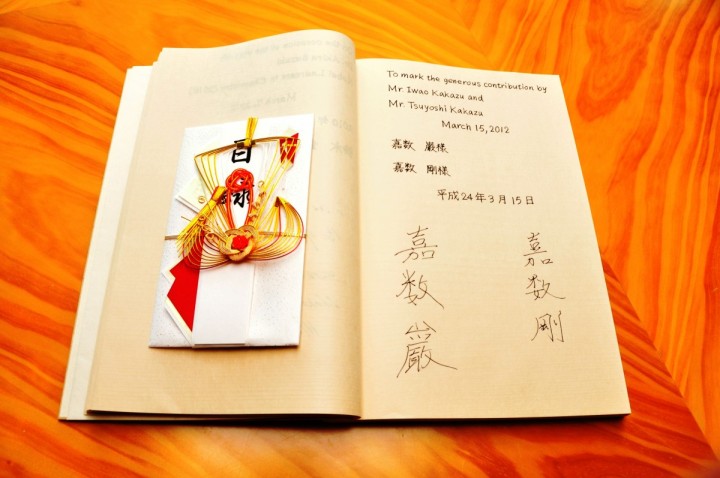 目録
To mark the generous contribution by
Mr. Iwao Kakazu and
Mr. Tsuyoshi Kakazu
March 15, 2012
嘉数 巌様
嘉数 剛様
平成24年3月15日
嘉数剛
嘉数巌